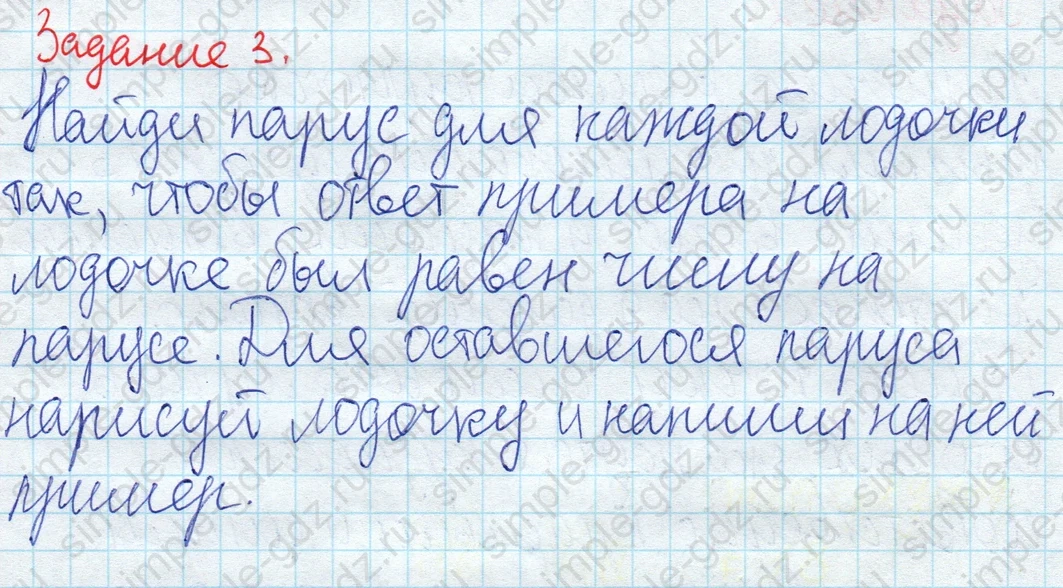 Задание 3.
Найди парус для каждой лодочки
так, чтобы ответ примера на
лодочке был равен числу на
парусе. Для оставшегося паруса
нарисуй лодочку и напиши на ней
пример.